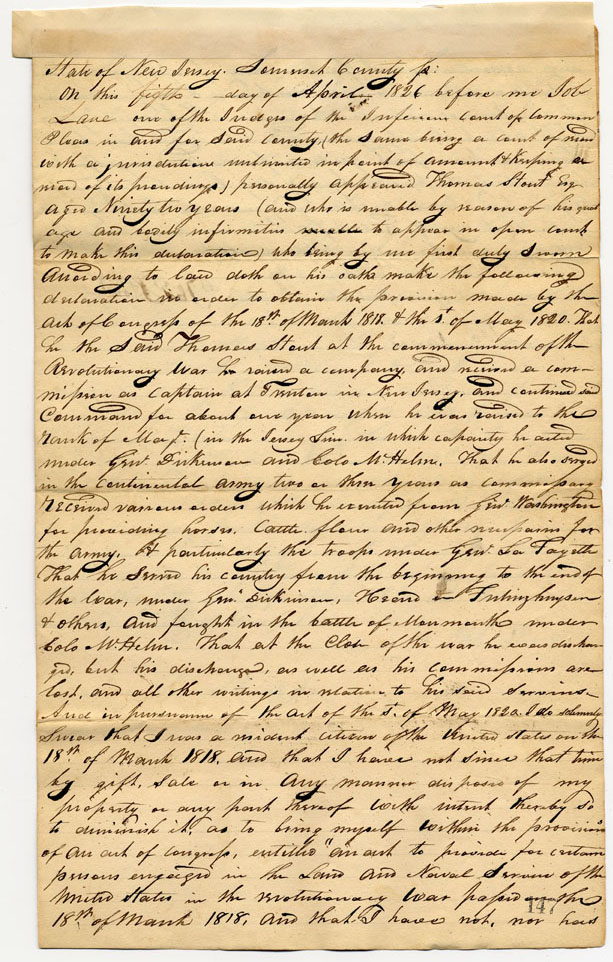 State of New Jersey. Somerset County ss:
On this fifth - day of April 1826 before me Job
Lane one of the Judges of the Inferior court of Common
Pleas in and for Said County, (the Same being a court of record
with a jurisdiction unlimited in point of amount & keeping a
record of its proceedings) personally appeared Thomas Stout Esq
aged Ninety two years (and who is unable by reason of his great
age and bodily infirmities to appear in open court
to make this declaration) who being by me first duly Sworn
According to law doth on his oath make the following
declaration in order to obtain the provision made by the
Acts of Congress of the 18th of March 1818. & the 1st. of May 1820. That
he the Said Thomas Stout at the commencement of the
Revolutionary War he raised a company, and received a com-
mission as Captain at Trenton in New Jersey, and continued said
Command for about one year when he was raised to the
rank of Majr. (in the Jersey line. in which capacity he acted
under Genl. Dickinson and Colo McHelm. That he also served
in the continental army two or three years as commissary
received various orders which he executed from Genl Washington
for providing horses. Cattle, flour and other necessaries for
the army, & particularly the troops under Genl. La Fayette
That he Served his country from the beginning to the end of
the War, under Genl Dickinson, Heard Frelinghuysen
& others, and fought in the battle of Monmouth under
Colo McHelm. That at the Close of the war he was dischar-
ged, but his discharge, as well as his commissions are
lost, and all other writings in relation to his said Services-
And in pursuance of the act of the 1st. of May 1820. I do solemnly
Swear that I was a resident citizen of the United States on the
18th of March 1818, and that I have not since that time
by gift, Sale or in any manner disposed of my
property or any part thereof with intent thereby so
to diminish it, as to bring myself within the provisions
of an act of congress, entitled "an act to provide for certain
persons engaged in the Land and Naval Service of the
United States in the revolutionary War passed on the
18th of March 1818, and that I have not, nor has
147